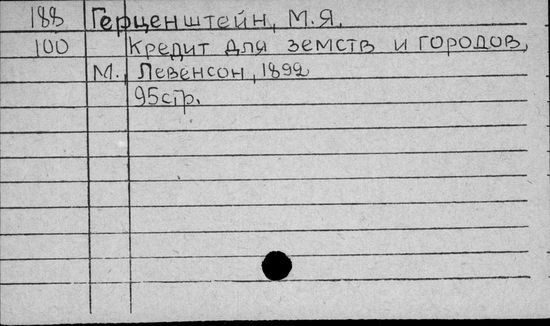 188 Герценштейн, М.Я.
100 Кредит для земств и городов,
М., Левенсон, 1892
95стр.